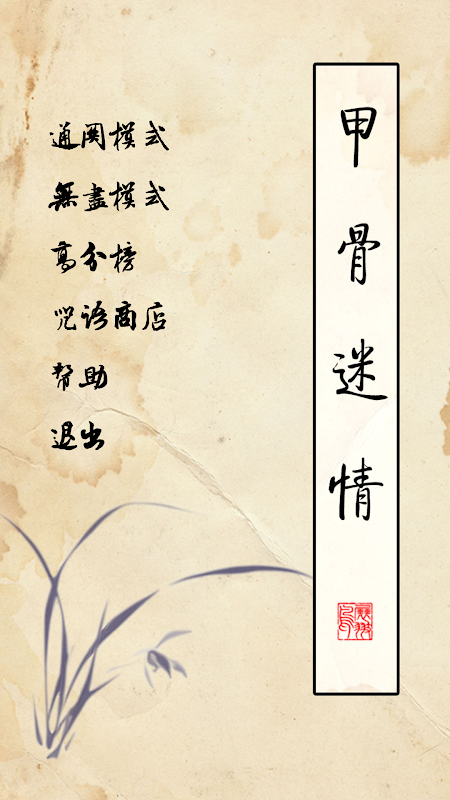 甲骨迷情
通関模式
無盡模式
高分榜
咒语商店
幫助
退出